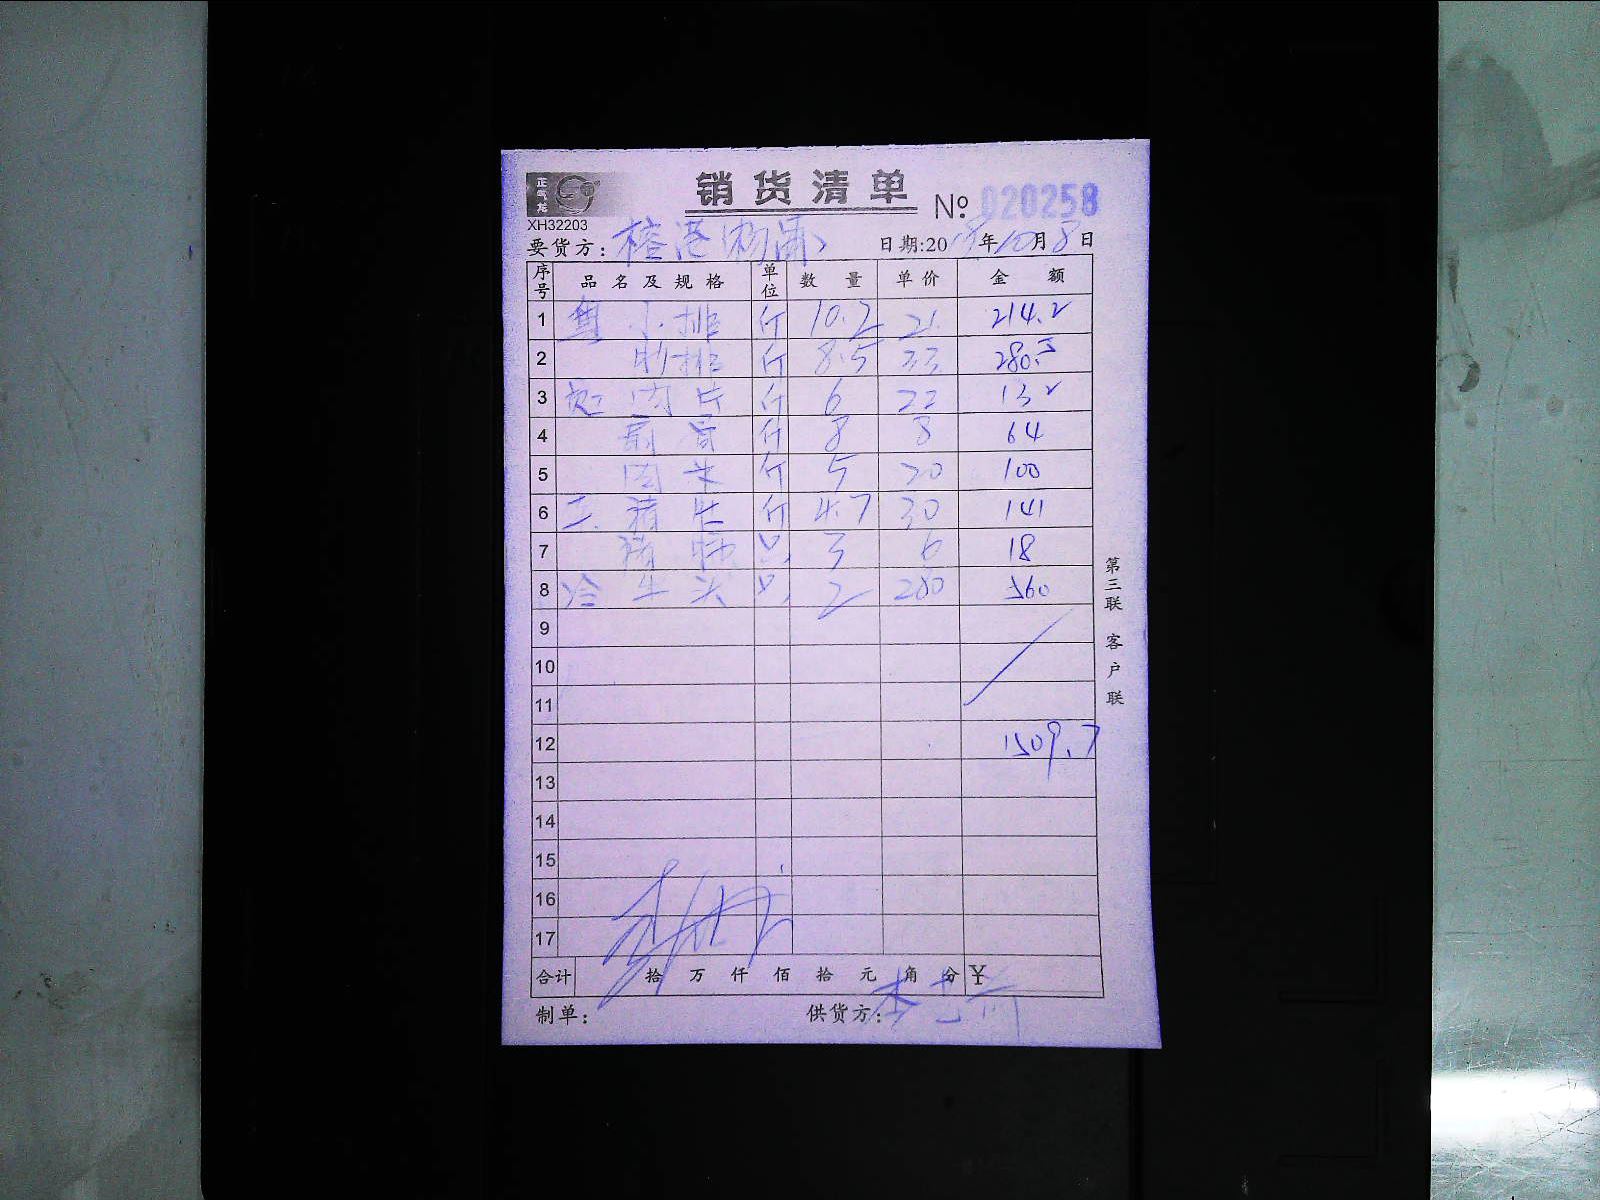 正气龙
销货清单
№ 020258
XH32203
要货方: 榕港
日期:20 年10月8日
序号 品名及规格 单位 数量 单价 金额
1 小排 斤 10.2 21. 214.2
2 排 斤 8.5 33. 280.5
3 肉片 斤 6 22 132
4 肩骨 斤 8 8 64
5 肉末 斤 5 20 100
6 猪肚 斤 4.7 30 141
7 猪 只 3 6 18
8 冷牛头 只 2 280 560
9
10
11
12 1509.7
13
14
15
16
17
合计 拾 万 仟 佰 拾 元 角 分 ¥
制单:
供货方:
第三联 客户联